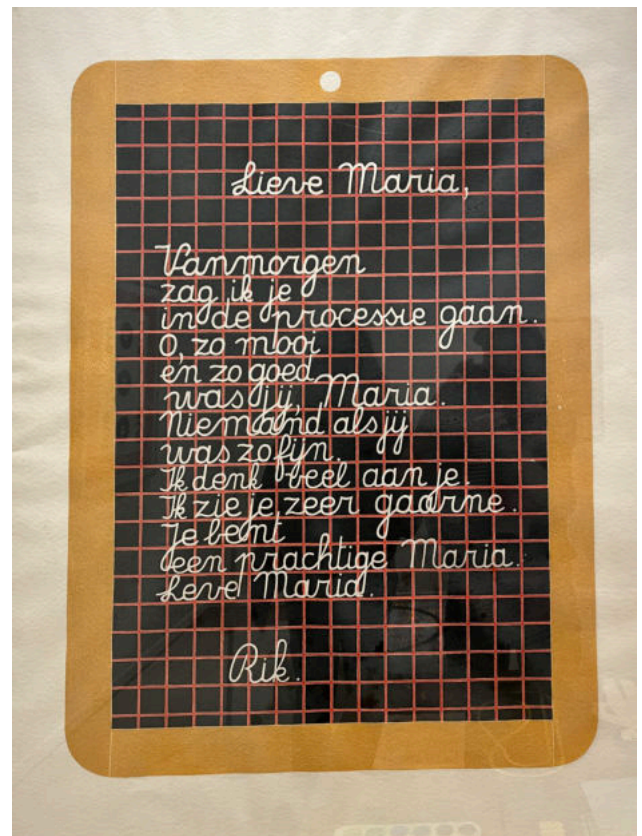 Lieve Maria,
Vanmorgen
zag ik je
in de processie gaan.
O, zo mooi
en zo goed
was jij, Maria.
Niemand als jij
was zo fijn.
Ik denk veel aan je.
Ik zie je zeer gaarne.
Je bent
een prachtige Maria.
Leve Maria.
Rik.